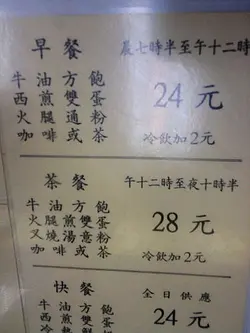 早餐 晨七時半至午十二時
牛油方飽
西煎雙蛋
火腿通粉
咖啡或茶
24元
冷飲加2元
茶餐 午十二時至夜十時半
牛油方飽
火腿煎雙蛋
叉燒湯意粉
咖啡或茶
28元
冷飲加2元
快餐 全日供應
牛油方
西煎雙
24元